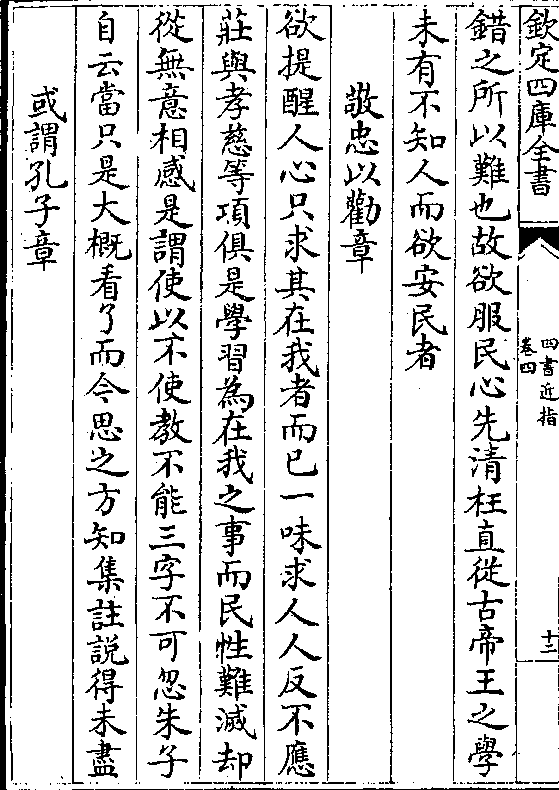 欽定四庫全書
四書近指
卷四
十三
錯之所以難也故欲服民心先清枉直從古帝王之學
未有不知人而欲安民者
敬忠以勸章
欲提醒人心只求其在我者而已一味求人人反不應
莊與孝慈等項俱是學習為在我之事而民性難滅却
從無意相感是謂使以不使教不能三字不可忽朱子
自云當只是大概看了而今思之方知集註說得未盡
或謂孔子章